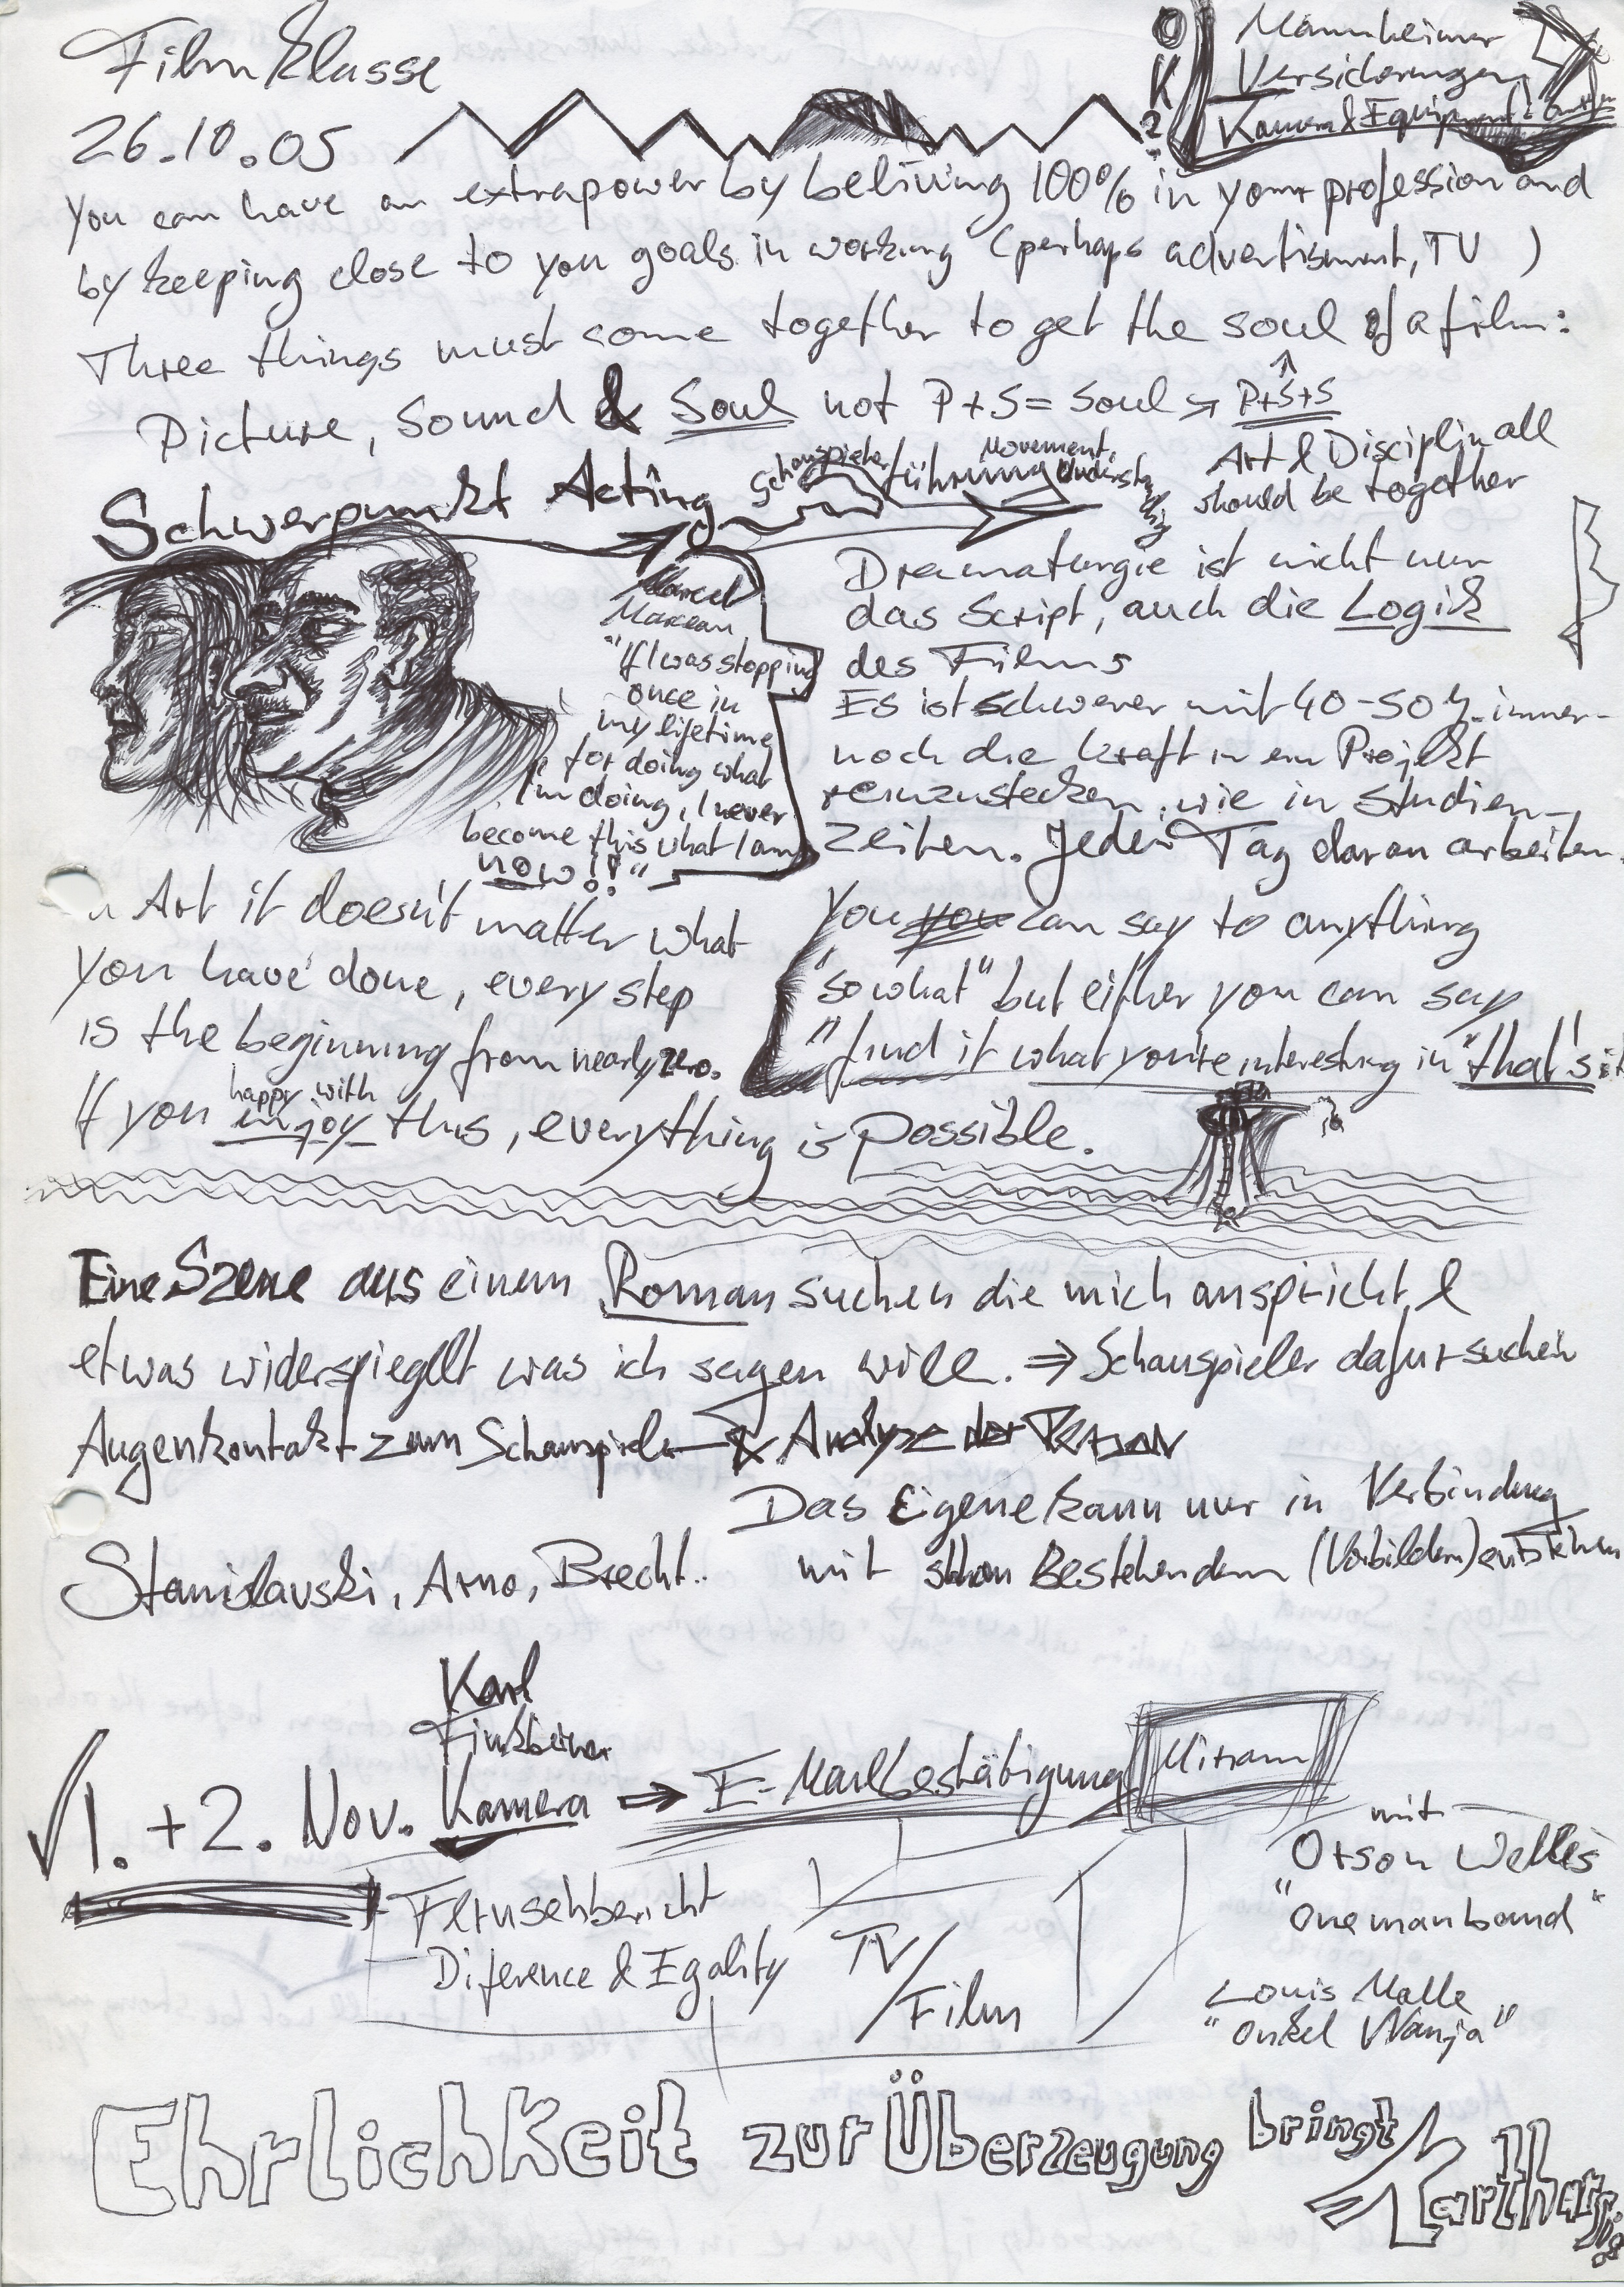 Filmklasse
26.10.05
OK?
Mannheimer
Versicherungen
Kamera & Equipment
You can have an extrapower by beliving 100% in your profession and
by keeping close to you goals in working (perhaps advertisment, TV )
Three things must come together to get the soul of a film:
Picture, Sound & Soul not P+S = Soul → P+S+S
Art & Disciplin all
should be together
Schwerpunkt Acting
Schauspieler führung Movement,
Marcel
Marceau
"If I was stopping
once in
my lifetime
for doing what
I'm doing, I never
become this what I am
now!!"
Dramaturgie ist nicht nur
das Script, auch die Logik
des Films
Es ist schwerer mit 40-50 J. immer-
noch die Kraft in ein Projekt
reinzustecken, wie in Studien-
zeiten. Jeden Tag daran arbeiten.
Art it doesn't matter what
you have done, every step
is the beginning from nearly zero.
If you enjoy happy with this, everything is possible.
You you can say to anything
"so what" but either you can say
"find it what you're interesting in "that's it
Eine Szene aus einem Roman suchen die mich anspricht &
etwas widerspieglt was ich sagen will. ⇒ Schauspieler dafür suchen
Augenkontakt zum Schauspieler & Analyse der Person
Das Eigene kann nur in Verbindung
mit schon Bestehendem (Vorbildern) entstehen
Stanislavski, Arno, Brecht..
Karl
Finkbeiner
√1. + 2. Nov. Kamera ⇒ E-Mailbestätigung Miriam
Fernsehbericht
Diference & Egality
TV/Film
mit
Orson Welles
"One man band"
Louis Malle
"Onkel Wanja"
Ehrlichkeit zur Überzeugung bringt